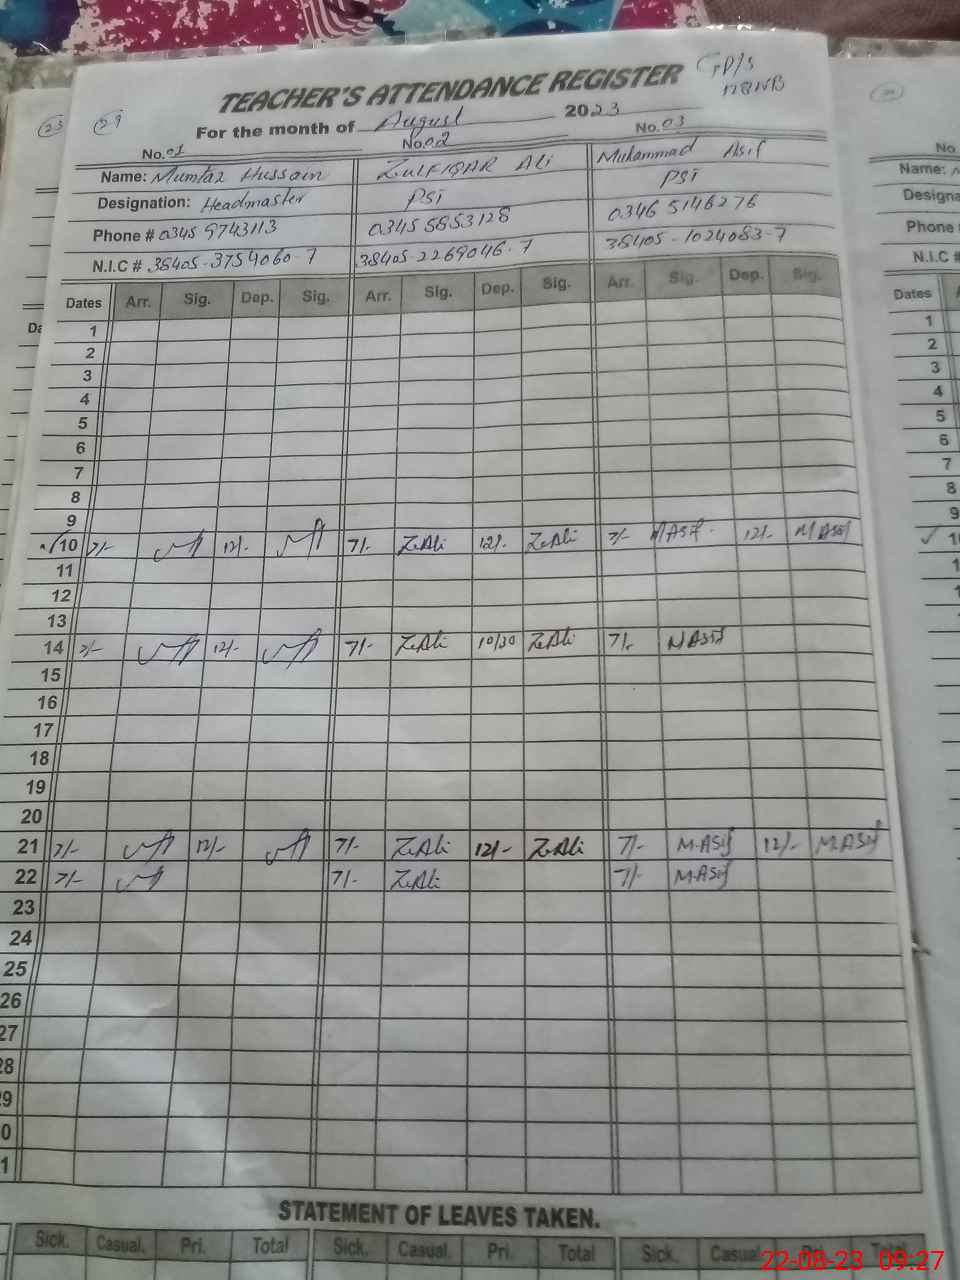 TEACHER'S ATTENDANCE REGISTER
GP/S
128 NB
23
29
For the month of August 2023
No.01 No.02 No.03
Name: Mumtaz Hussain ZULFIQAR Ali Muhammad Asif
Designation: Headmaster PSI PSI
Phone # 0345 9743113 0345 5853128 0346 5146276
N.I.C # 38405-3754060-7 38405-2269046-7 38405-1024083-7
Dates Arr. Sig. Dep. Sig. Arr. Sig. Dep. Sig. Arr. Sig. Dep. Sig.
1
2
3
4
5
6
7
8
9
10 7/- 12/- 7/- Z.Ali 12/- Z.Ali 7/- M Asif 12/- M Asif
11
12
13
14 7/- 12/- 7/- Z.Ali 10/30 Z.Ali 7/- M Asif
15
16
17
18
19
20
21 7/- 12/- 7/- Z.Ali 12/- Z.Ali 7/- M.Asif 12/- M.Asif
22 7/- 7/- Z.Ali 7/- M.Asif
23
24
25
26
27
28
9
0
1
STATEMENT OF LEAVES TAKEN.
Sick. Casual. Pri. Total Sick. Casual. Pri. Total Sick. Casual Pri. Total
22-08-23 09:27
No
Name:
Designa
Phone
N.I.C #
Dates
1
2
3
4
5
6
7
8
9